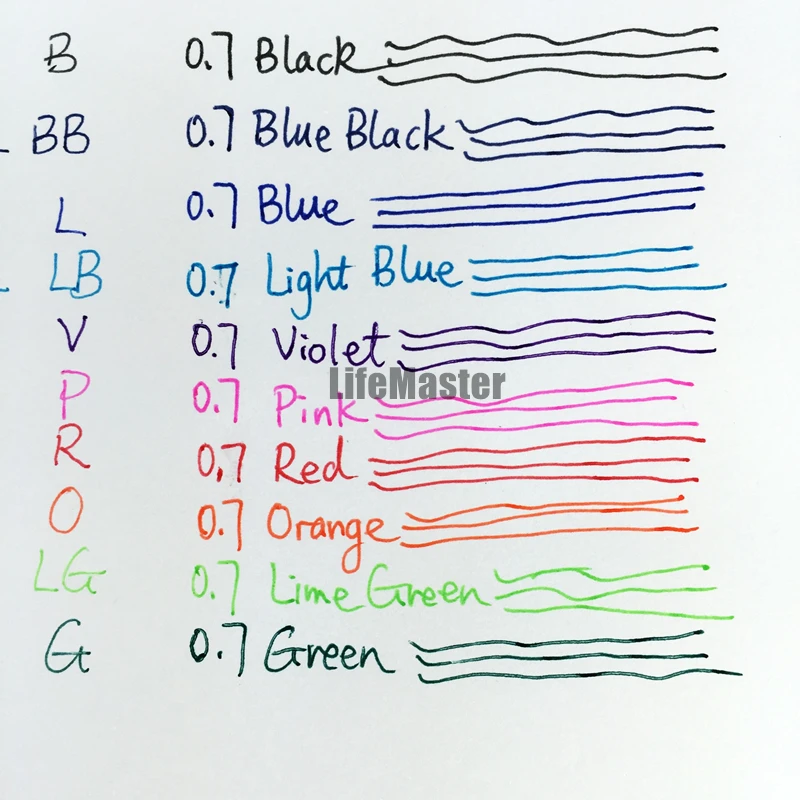 B 0.7 Black
BB 0.7 Blue Black
L 0.7 Blue
LB 0.7 Light Blue
V 0.7 Violet
LifeMaster
P 0.7 Pink
R 0.7 Red
O 0.7 Orange
LG 0.7 Lime Green
G 0.7 Green